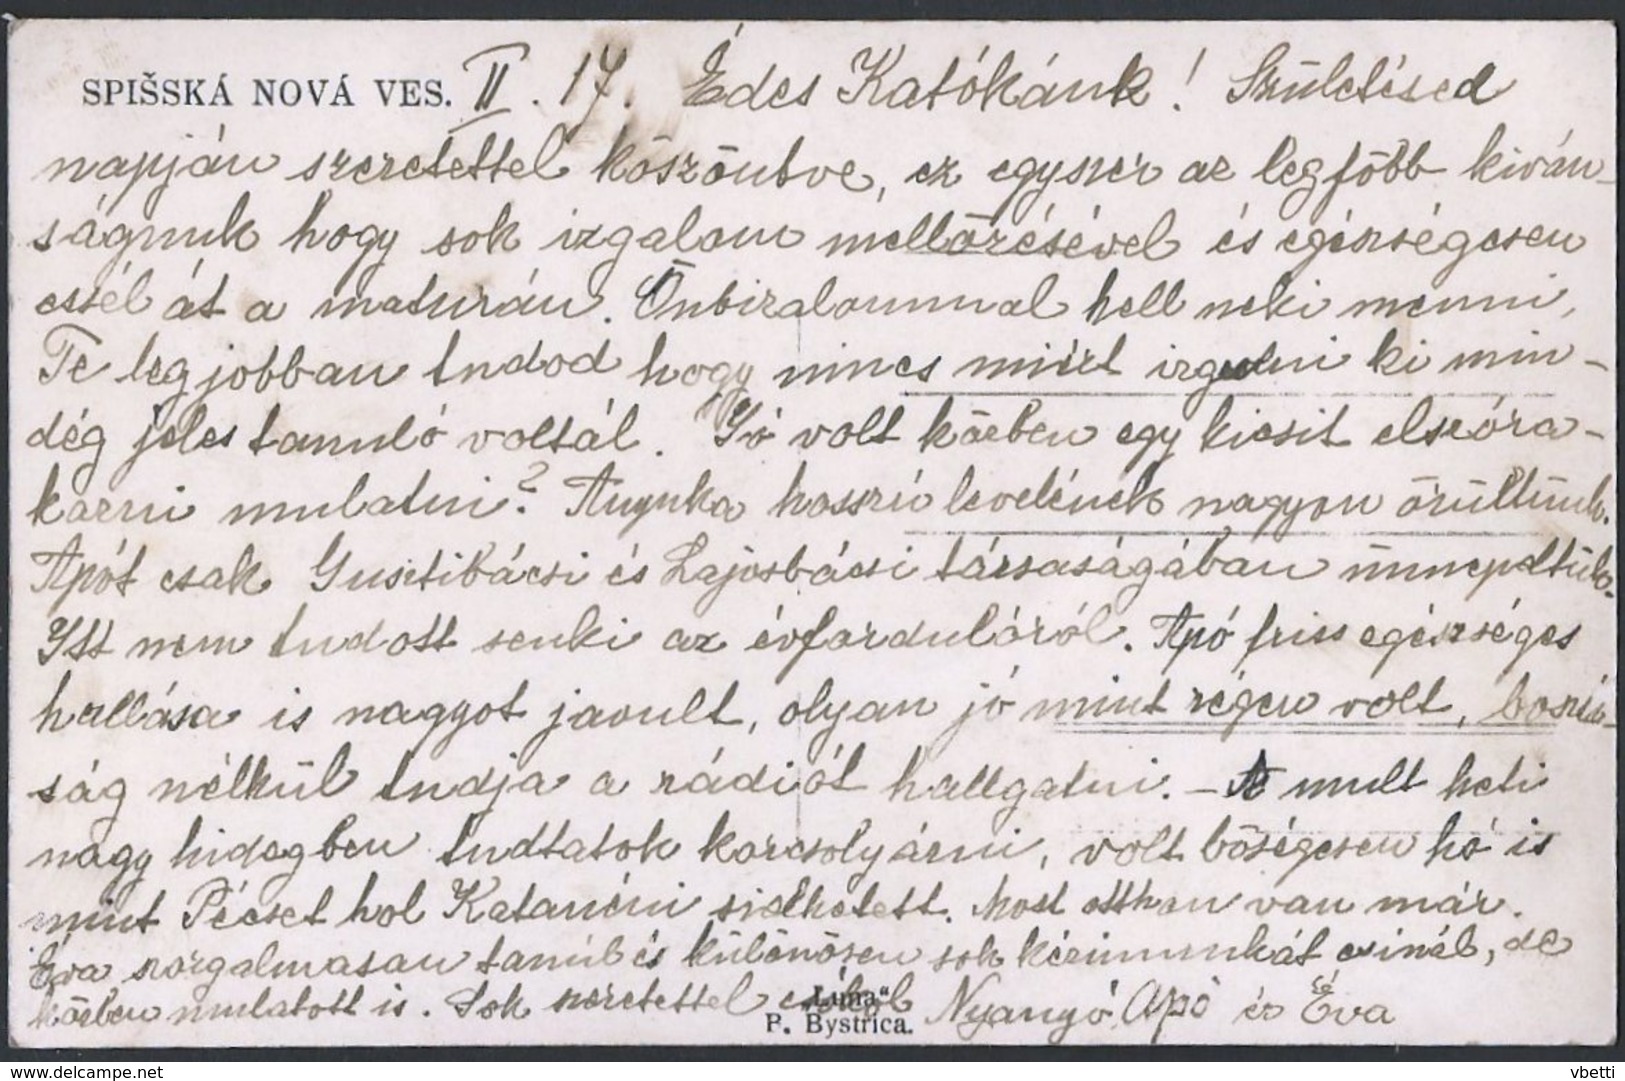 SPIŠSKÁ NOVÁ VES. II. 17. Édes Katókánk! Születésed
napján szeretettel köszöntve, ez egyszer az legfőbb kiván-
ságunk hogy sok izgalom mellőzésével és egészségesen
essél át a maturán. Önbizalommal kell neki menni,
Te legjobban tudod hogy nincs miért izgulni ki min-
dég jeles tanuló voltál. Jó volt közben egy kicsit elszóra-
kozni mulatni? Anyuka hosszú levelének nagyon örültünk.
Apót csak Gusztibácsi és Lajosbácsi társaságában ünnepeltük.
Itt nem tudott senki az évfordulóról. Apó friss egészséges
hallása is nagyot javult, olyan jó mint régen volt, boszu-
ság nélkül tudja a rádiót hallgatni. - A mult heti
nagy hidegben tudtatok korcsolyázni, volt bőségesen hó is
mint Pécset hol Katanéni sielhetett. Most otthon van már.
Éva szorgalmasan tanúl és különösen sok kézimunkát csinál, de
közben mulatott is. Sok szeretettel csókol Nyangyó, Apó és Éva
"Luna"
P. Bystrica.
delcampe.net
vbetti